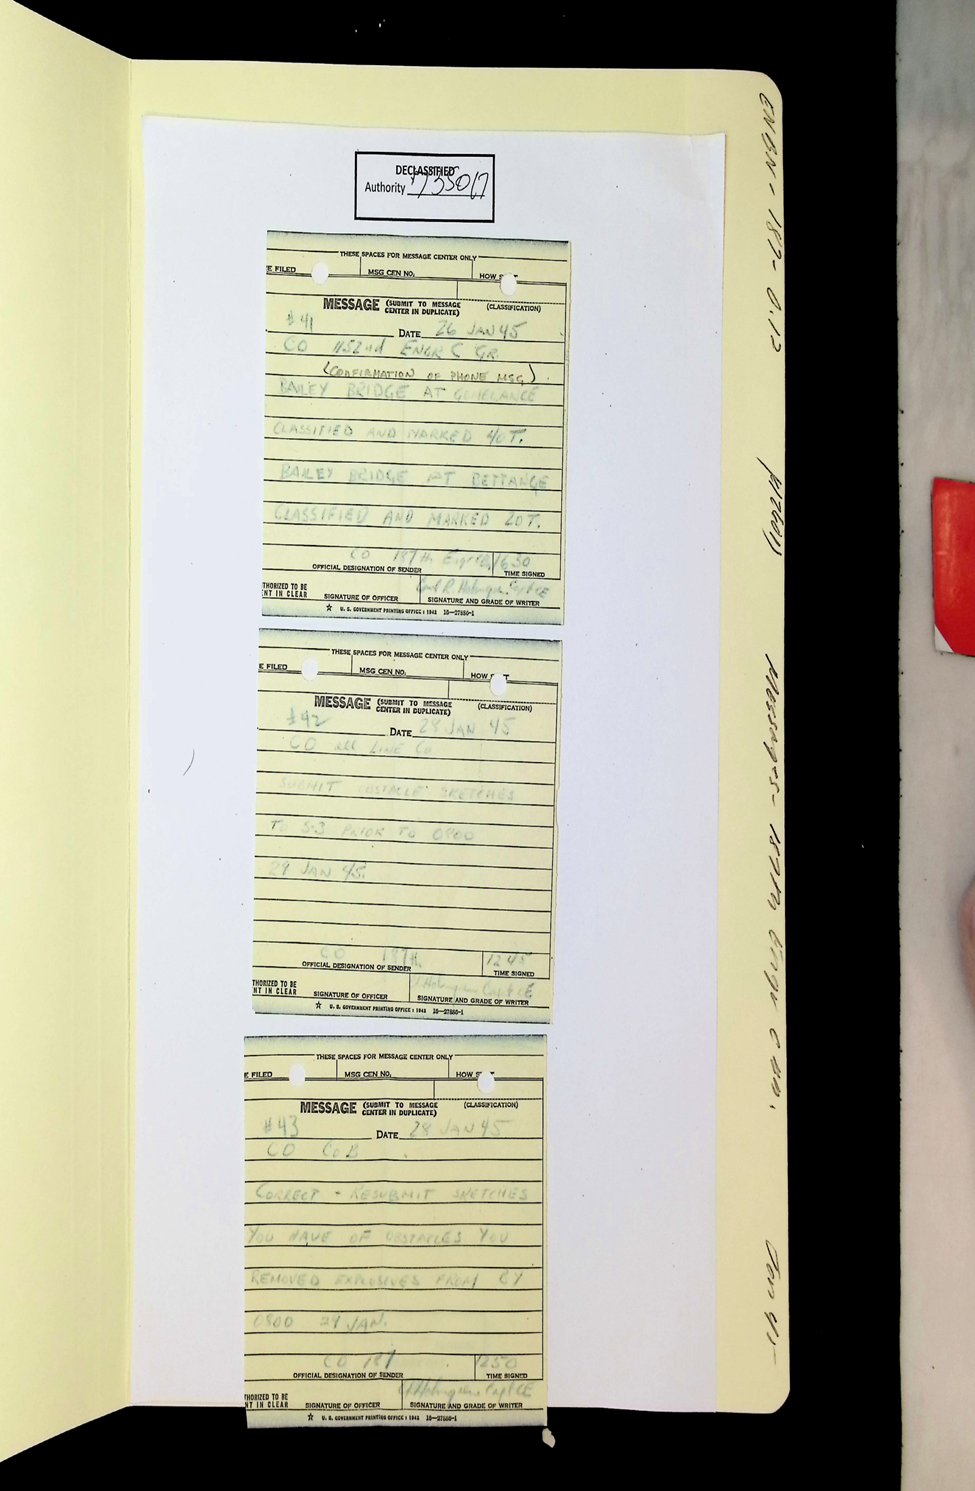 DECLASSIFIED
Authority 735017
THESE SPACES FOR MESSAGE CENTER ONLY
E FILED
MSG CEN NO.
HOW S T
MESSAGE (SUBMIT TO MESSAGE CENTER IN DUPLICATE)
(CLASSIFICATION)
#41
DATE 26 JAN 45
CO 1152nd ENGR C GR.
(CONFIRMATION OF PHONE MSG)
BAILEY BRIDGE AT
CLASSIFIED AND MARKED 40T.
BAILEY BRIDGE AT BETTANGE
CLASSIFIED AND MARKED 20T.
CO 187th Engr 1630
OFFICIAL DESIGNATION OF SENDER
TIME SIGNED
THORIZED TO BE
NT IN CLEAR
Holmgren Capt CE
SIGNATURE OF OFFICER
SIGNATURE AND GRADE OF WRITER
☆ U. S. GOVERNMENT PRINTING OFFICE : 1942 16—27880-1
THESE SPACES FOR MESSAGE CENTER ONLY
E FILED
MSG CEN NO.
HOW T
MESSAGE (SUBMIT TO MESSAGE CENTER IN DUPLICATE)
(CLASSIFICATION)
#42
DATE 28 JAN 45
CO all LINE Co
SUBMIT OBSTACLE SKETCHES
TO S-3 PRIOR TO 0800
29 JAN 45.
CO 187th 1245
OFFICIAL DESIGNATION OF SENDER
TIME SIGNED
THORIZED TO BE
NT IN CLEAR
Holmgren Capt CE
SIGNATURE OF OFFICER
SIGNATURE AND GRADE OF WRITER
☆ U. S. GOVERNMENT PRINTING OFFICE : 1942 16—27880-1
THESE SPACES FOR MESSAGE CENTER ONLY
E FILED
MSG CEN NO.
HOW S T
MESSAGE (SUBMIT TO MESSAGE CENTER IN DUPLICATE)
(CLASSIFICATION)
#43
DATE 28 JAN 45
CO Co B
CORRECT - RESUBMIT SKETCHES
YOU HAVE OF OBSTACLES YOU
REMOVED EXPLOSIVES FROM BY
0800 29 JAN.
CO 187 1250
OFFICIAL DESIGNATION OF SENDER
TIME SIGNED
THORIZED TO BE
NT IN CLEAR
Holmgren Capt CE
SIGNATURE OF OFFICER
SIGNATURE AND GRADE OF WRITER
☆ U. S. GOVERNMENT PRINTING OFFICE : 1942 16—27880-1
ENBN - 187 - 0.12 (10921) Messages - 187th Engr C Bn.